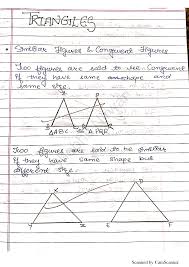 TRIANGLES
• Similar Figures & Congruent Figures
Two figures are said to be Congruent
if they have same shape and
same size.
ΔABC ≅ ΔPQR
Two figures are said to be similar
if they have same shape but
different size.
X
Y
E
F
Scanned by CamScanner